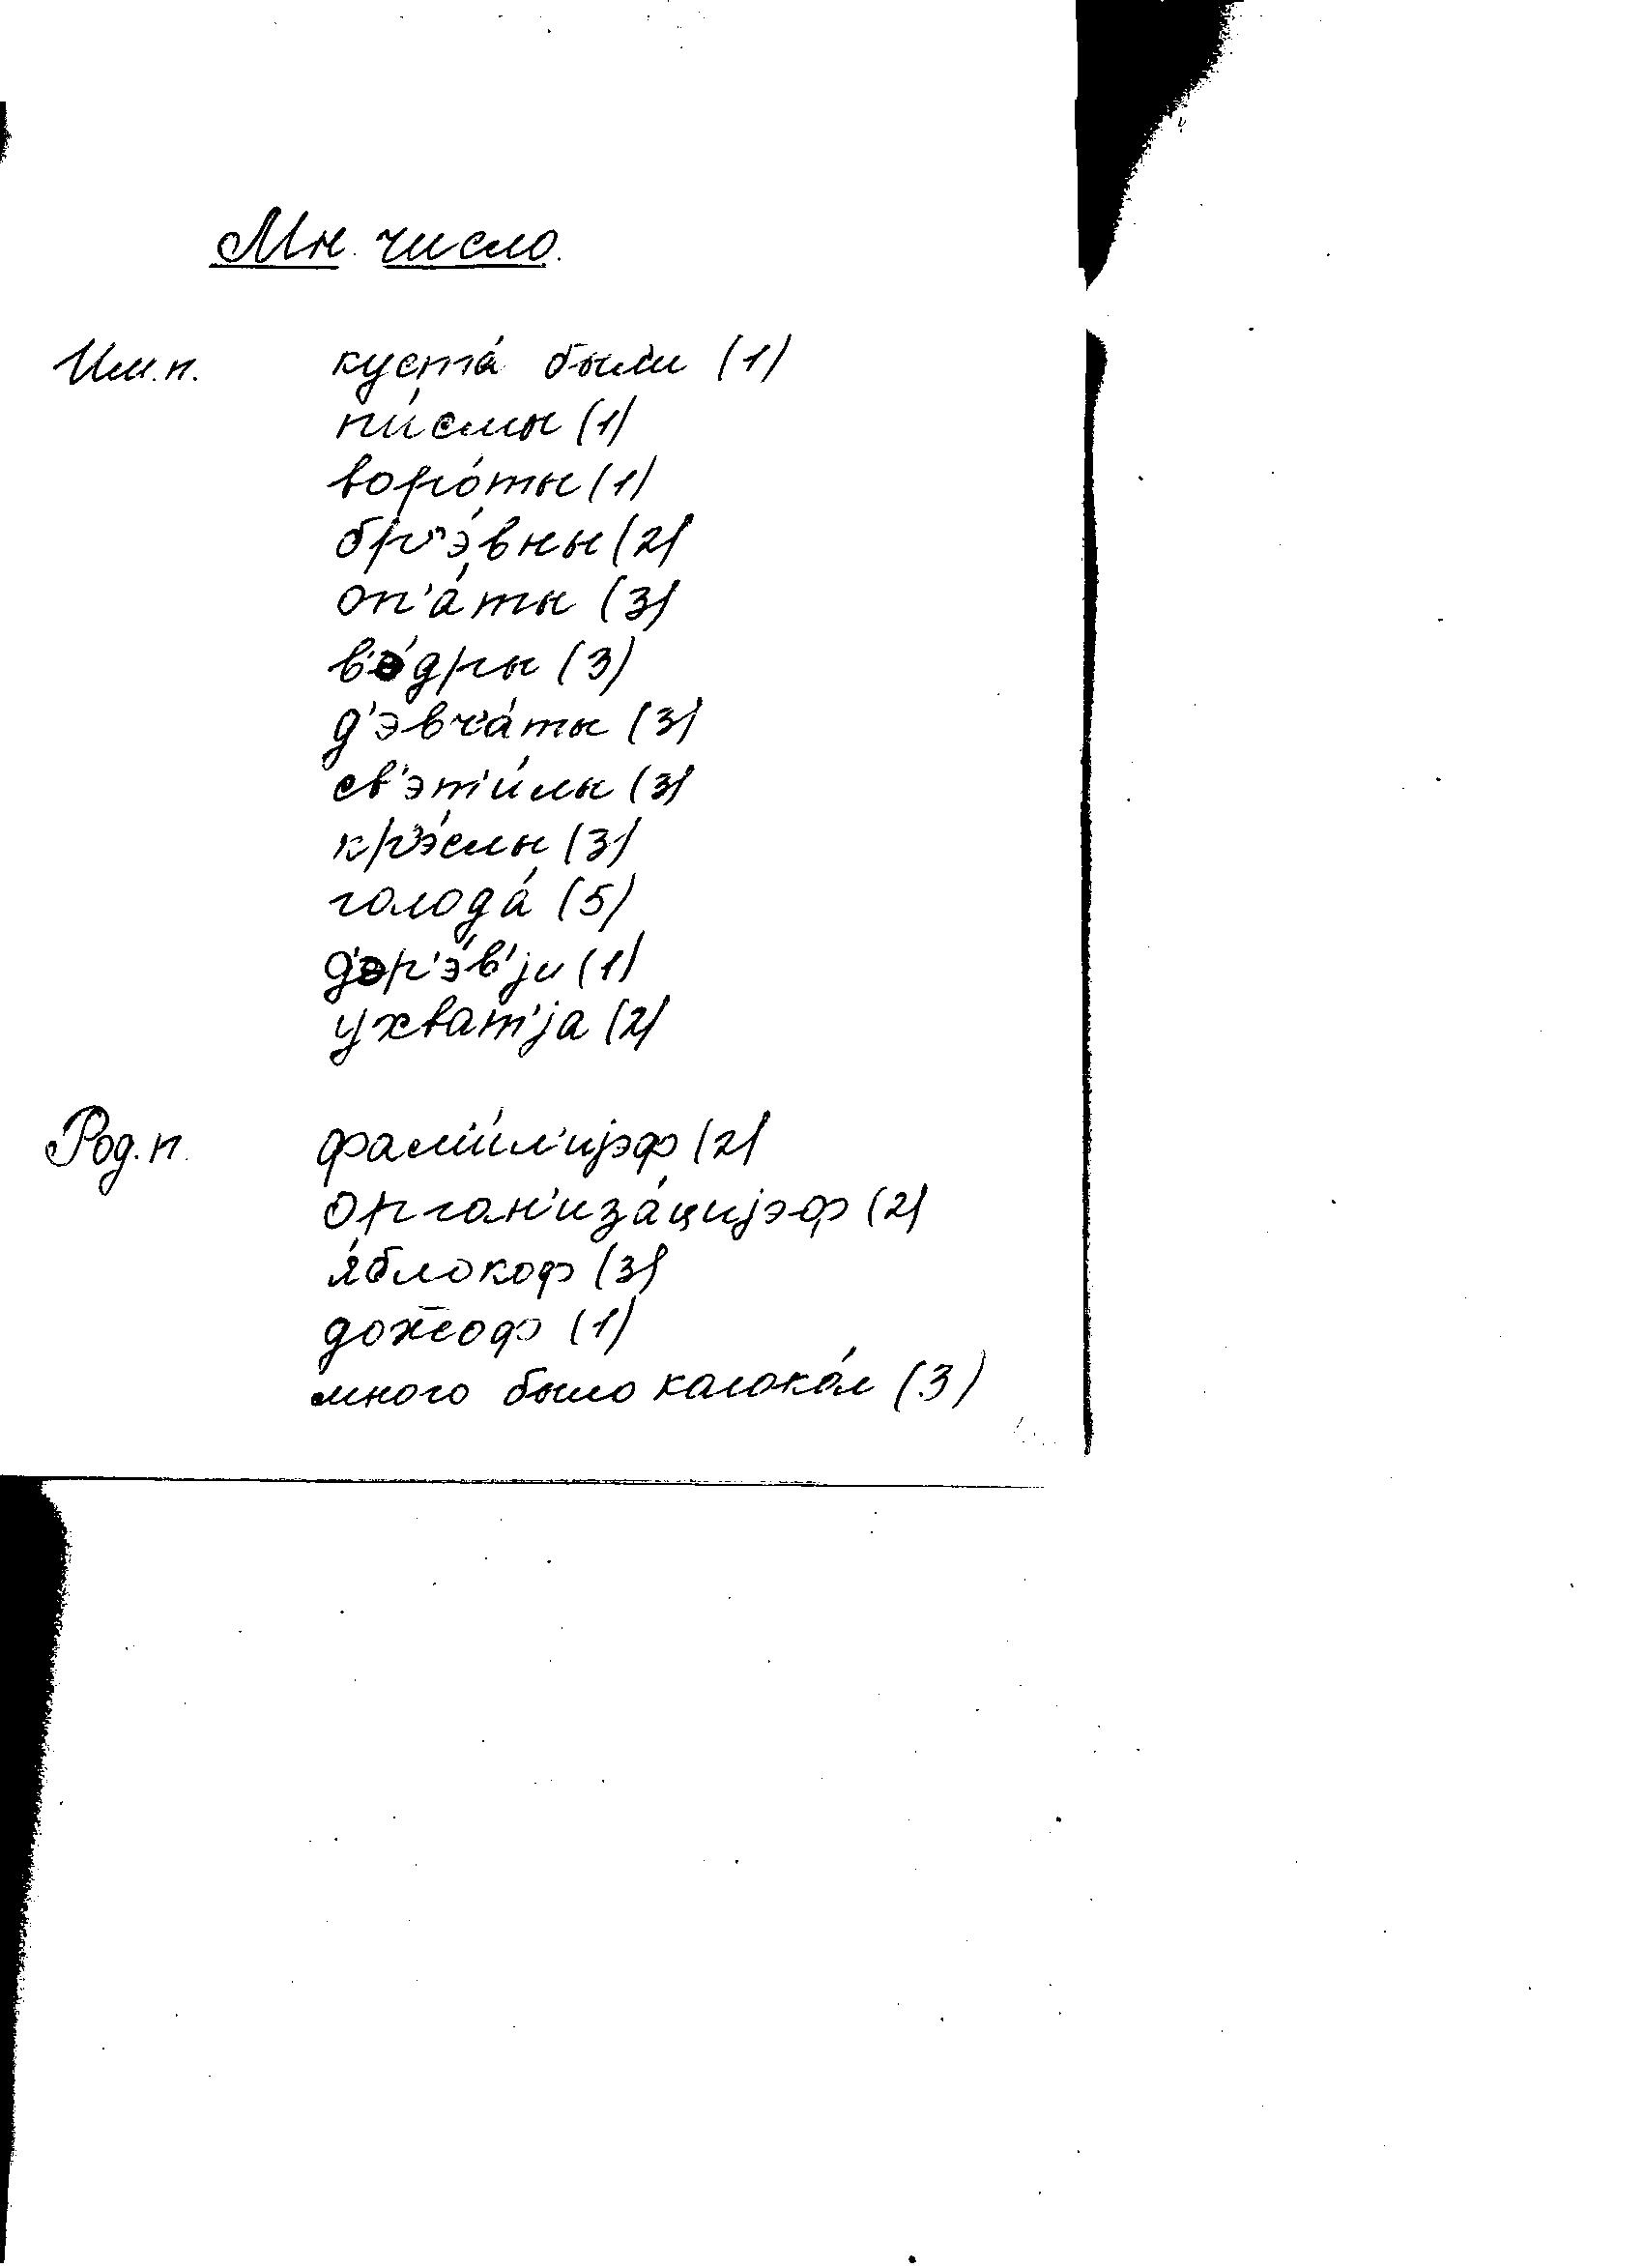 Мн. число.
Им.п. куста́ были (1)
пи́смы (1)
воро́ты (1)
бр'э́вны (2)
оп'а́ты (3)
в'о́дры (3)
д'эвча́ты (3)
св'эт'и́лы (3)
кр'э́слы (3)
голода́ (5)
д'эр'э́в'jи (1)
ухват'jа (2)
Род.п. фам'и́л'иjэф (2)
орган'иза́цијэф (2)
я́блокоф (3)
дож̅оф (1)
много было калоко́л (3)